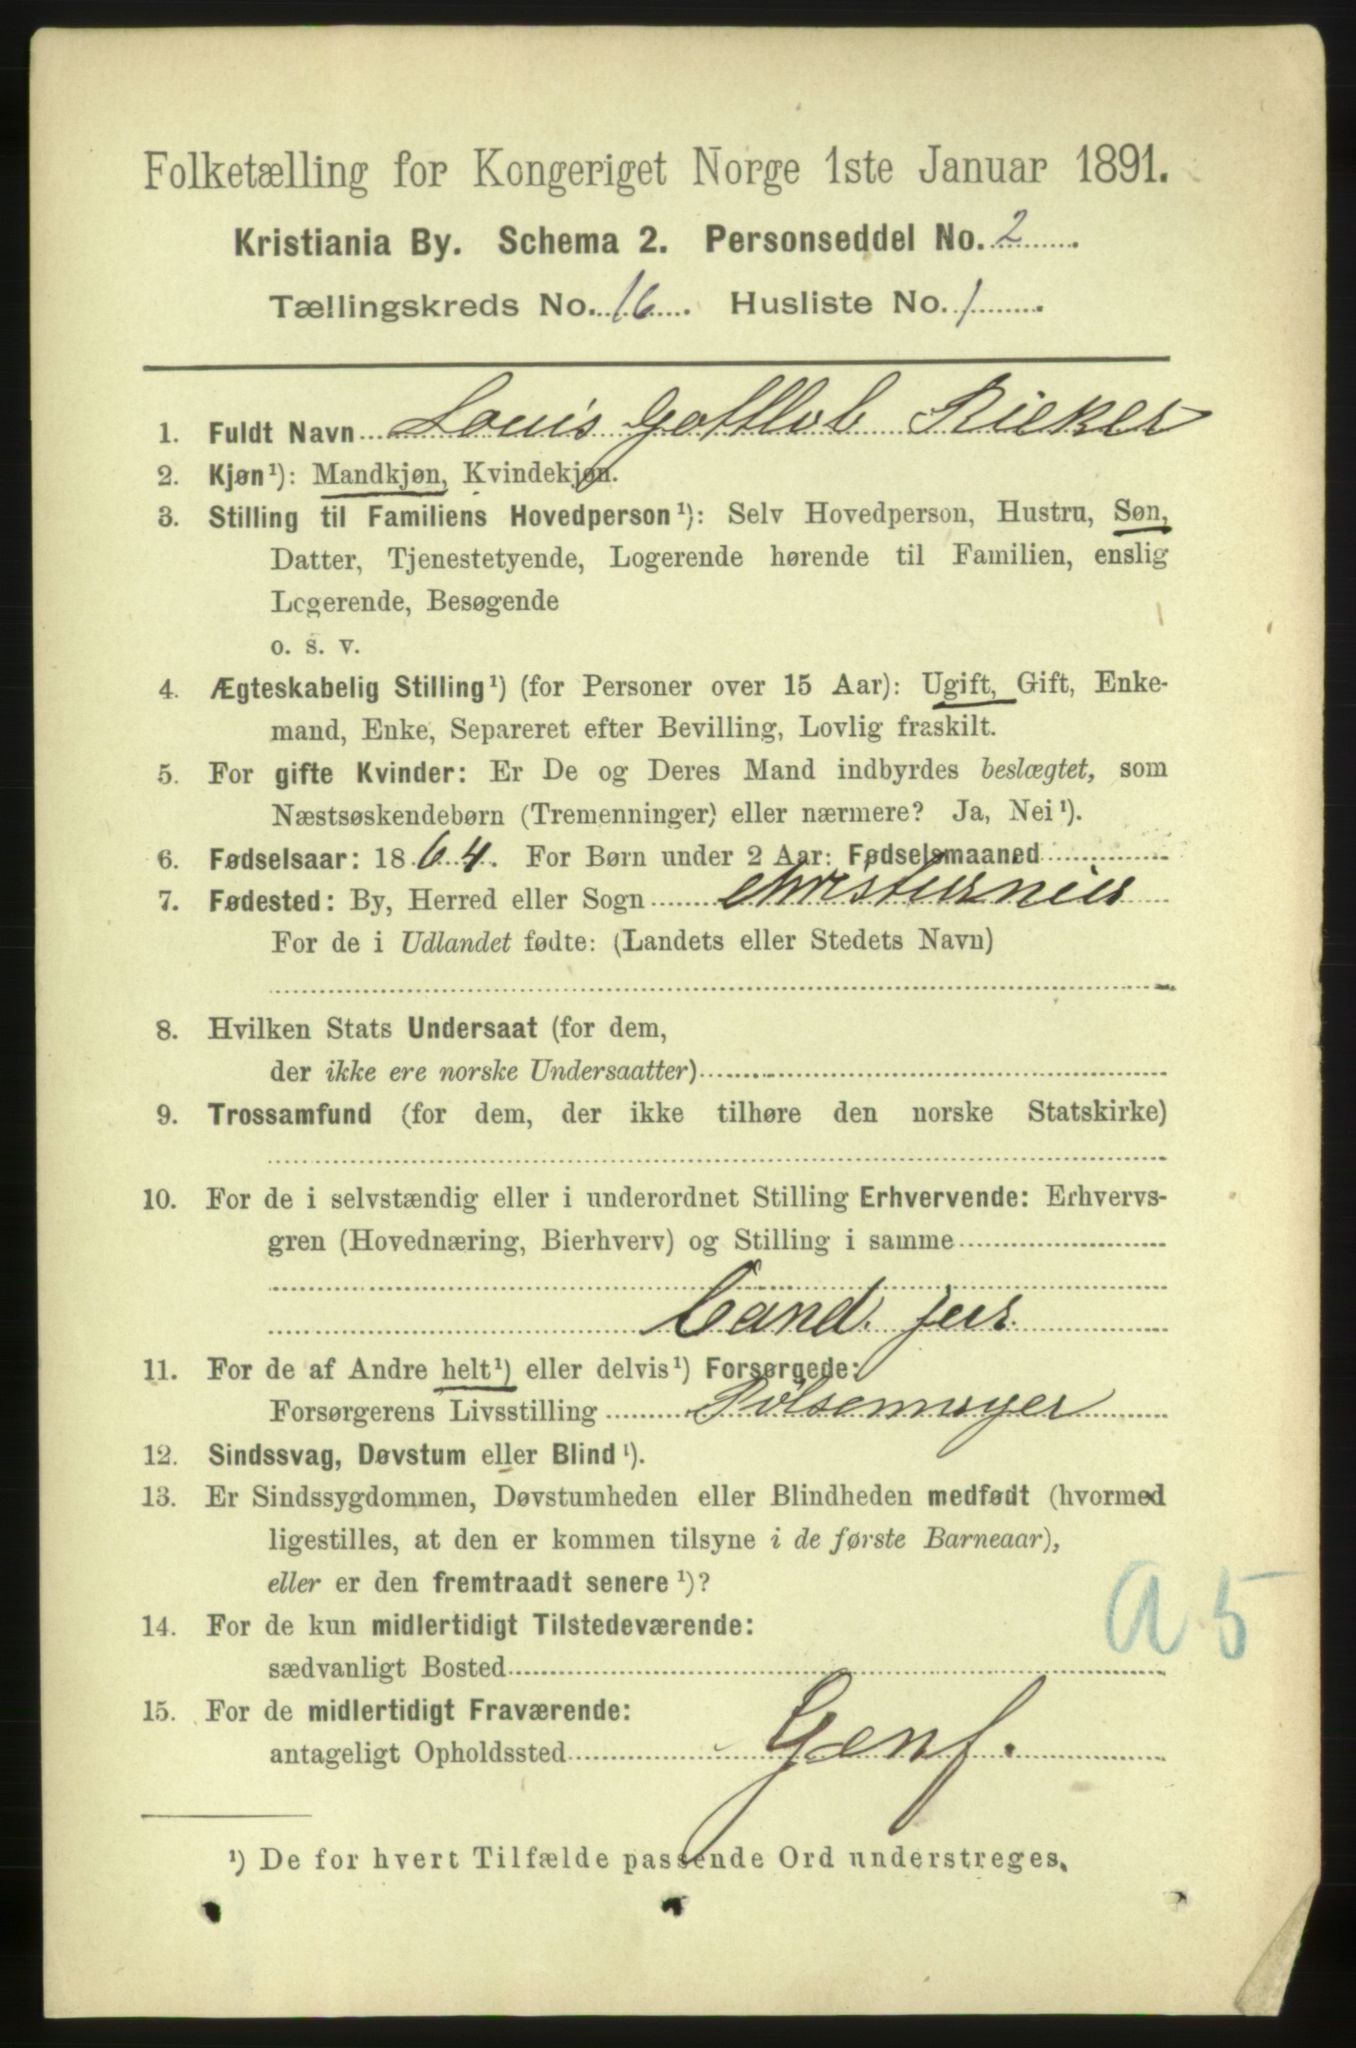 Folketælling for Kongeriget Norge 1ste Januar 1891.
Kristiania By. Schema 2. Personseddel No. 2.
Tællingskreds No. 16. Husliste No. 1.
1. Fuldt Navn Louis Gottlob Rieker
2. Kjøn¹): Mandkjøn, Kvindekjøn.
3. Stilling til Familiens Hovedperson¹): Selv Hovedperson, Hustru, Søn,
Datter, Tjenestetyende, Logerende hørende til Familien, enslig
Logerende, Besøgende
o. s. v.
4. Ægteskabelig Stilling¹) (for Personer over 15 Aar): Ugift, Gift, Enke-
mand, Enke, Separeret efter Bevilling, Lovlig fraskilt.
5. For gifte Kvinder: Er De og Deres Mand indbyrdes beslægtet, som
Næstsøskendebørn (Tremenninger) eller nærmere? Ja, Nei¹).
6. Fødselsaar: 1864. For Børn under 2 Aar: Fødselsmaaned
7. Fødested: By, Herred eller Sogn Christiania
For de i Udlandet fødte: (Landets eller Stedets Navn)
8. Hvilken Stats Undersaat (for dem,
der ikke ere norske Undersaatter)
9. Trossamfund (for dem, der ikke tilhøre den norske Statskirke)
10. For de i selvstændig eller i underordnet Stilling Erhvervende: Erhvervs-
gren (Hovednæring, Bierhverv) og Stilling i samme
Cand. jur.
11. For de af Andre helt¹) eller delvis¹) Forsørgede:
Forsørgerens Livsstilling Pølsemager
12. Sindssvag, Døvstum eller Blind¹).
13. Er Sindssygdommen, Døvstumheden eller Blindheden medfødt (hvormed
ligestilles, at den er kommen tilsyne i de første Barneaar),
eller er den fremtraadt senere¹)?
14. For de kun midlertidigt Tilstedeværende:
sædvanligt Bosted
a 5
15. For de midlertidigt Fraværende:
antageligt Opholdssted Genf.
¹) De for hvert Tilfælde passende Ord understreges.